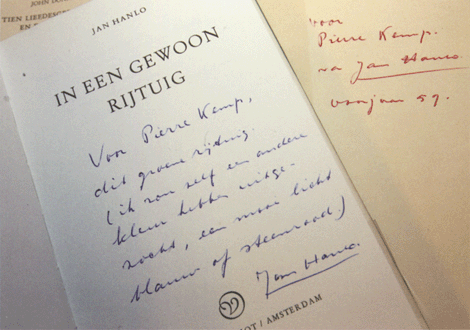 JOHN
TIEN LIEDE
EN
JAN HANLO
IN EEN GEWOON
RIJTUIG
Voor Pierre Kemp,
dit groene rijtuig.
(ik zou zelf een andere
kleur hebben uitge-
zocht, een mooi licht
blauw of steenrood)
Jan Hanlo
OT / AMSTERDAM
voor
Pierre Kemp.
va Jan Hanlo
voorjaar 59.